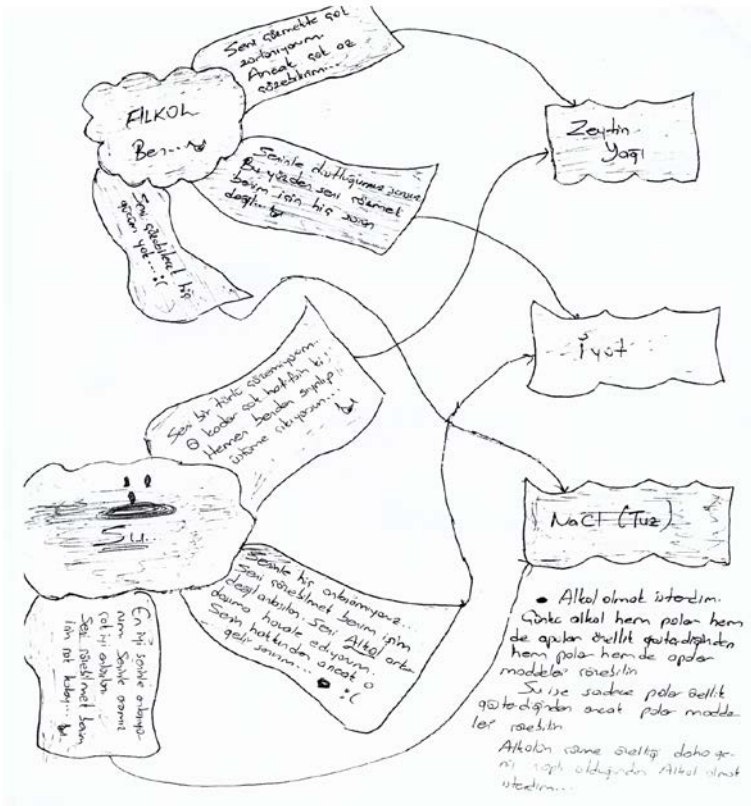 Seni çözmekte çok
zorlanıyorum.
Ancak çok az
çözebilirim...
ALKOL
Ben...
Seninle
Bu yüzden seni çözmek
benim için hiç sorun
değil...
Seni çözebilecek hiç
gücüm yok...:(
Zeytin
Yağı
İyot
NaCl (Tuz)
Seni bir türlü çözemiyorum.
O kadar çok hafifsin ki!
Hemen benden sıyrılıp
üstüme çıkıyorsun...
Su
Seninle hiç anlaşamıyoruz...
Seni çözebilmek benim için
değil anlaşılan. Seni Alkol arka-
daşıma havale ediyorum.
Senin hakkından ancak o
gelir sanırım... :(
En iyi seninle anlaşıyo-
rum. Seninle aramız
çok iyi anlaşılan
Seni çözebilmek benim
için çok kolay...
• Alkol olmak isterdim.
Çünkü alkol hem polar hem
de apolar özellik gösterdiğinden
hem polar hem de apolar
maddeler çözebilir
Su ise sadece polar özellik
gösterdiğinden ancak polar madde-
leri çözebilir
Alkolün çözme özelliği daha ge-
niş olduğundan Alkol olmak
isterdim...